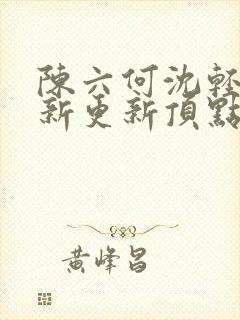 陳六何沈輕
新更新頂點
黃峰昌